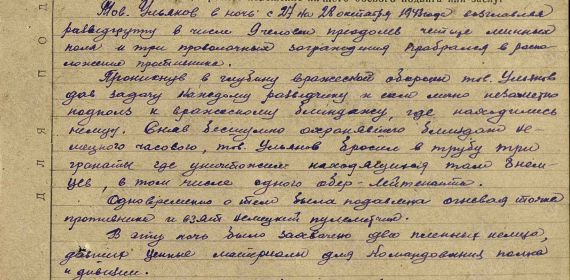 Тов. Ульянов в ночь с 27 на 28 октября 1943 года возглавляя
разведгруппу в числе 9 человек преодолев четыре минных
поля и три проволочных заграждения пробрался в распо-
ложение противника.
Проникнув в глубину вражеской обороны тов. Ульянов
дав задачу каждому разведчику и сам лично незаметно
подполз к вражескому блиндажу, где находились
немцы. Сняв бесшумно охранявшего блиндаж не-
мецкого часового, тов. Ульянов бросил в трубу три
гранаты где уничтожил находящихся там 8 нем
цев, в том числе одного обер-лейтенанта.
Одновременно с тем была подавлена огневая точка
противника и взят немецкий пулемет.
В эту ночь было захвачено два пленных немца,
давших ценные материалы для командования полка
и дивизии.
ДЛЯ ПОД